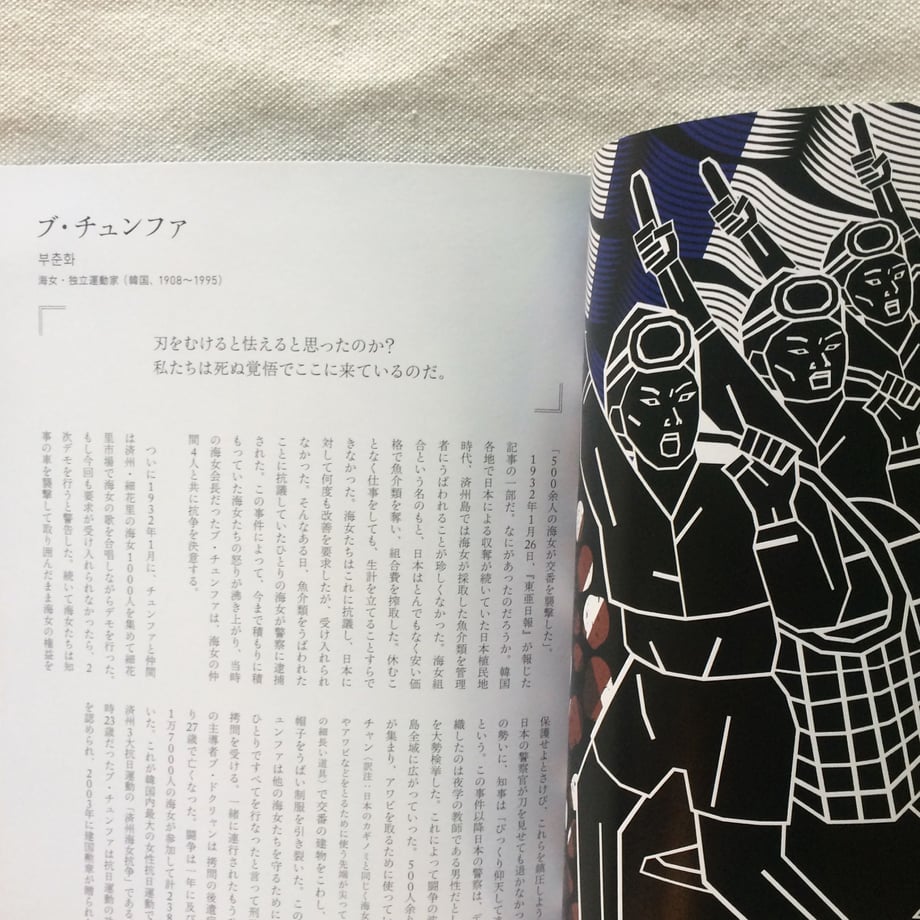 ブ・チュンファ
부춘화
海女・独立運動家（韓国、1908〜1995）
刃をむけると怯えると思ったのか？
私たちは死ぬ覚悟でここに来ているのだ。
「500余人の海女が交番を襲撃した」。
1932年1月26日、『東亜日報』が報じた
記事の一部だ。なにがあったのだろうか。韓国
各地で日本による収奪が続いていた日本植民地
時代、済州島では海女が採取した魚介類を管理
者にうばわれることが珍しくなかった。海女組
合という名のもと、日本はとんでもなく安い価
格で魚介類を奪い、組合費を搾取した。休むこ
となく仕事をしても、生計を立てることすらで
きなかった。海女たちはこれに抗議し、日本に
対して何度も改善を要求したが、受け入れられ
なかった。そんなある日、魚介類をうばわれた
ことに抗議していたひとりの海女が警察に逮捕
された。この事件によって、今まで積もりに積
もっていた海女たちの怒りが沸き上がり、当時
の海女会長だったブ・チュンファは、海女の仲
間4人と共に抗争を決意する。
ついに1932年1月に、チュンファと仲間
は済州・細花里の海女1000人を集めて細花
里市場で海女の歌を合唱しながらデモを行った。
もし今回も要求が受け入れられなかったら、2
次デモを行うと警告した。続いて海女たちは知
事の車を襲撃して取り囲んだまま海女の権益を
保護せよとさけび、これらを鎮圧しよう
日本の警察官が刀を見せても退かなかっ
の勢いに、知事は「びっくり仰天して
という。この事件以降日本の警察は、デ
織したのは夜学の教師である男性だと
を大勢検挙した。これによって闘争の
島全域に広がっていった。500人余
が集まり、アワビを取るために使って
チャン（訳注：日本のカギノミと同じく海女
やアワビなどをとるために使う先端が尖って
の細長い道具）で交番の建物をこわし、
帽子をうばい制服を引き裂いた。この
ュンファは他の海女たちを守るために
ひとりですべてを行なったと言って刑
拷問を受ける。一緒に連行されたもう
の主導者ブ・ドクリャンは拷問の後遺
り27歳で亡くなった。闘争は一年に及び
1万7000人の海女が参加して計238
いた。これが韓国内最大の女性抗日運動で
済州3大抗日運動の「済州海女抗争」である
時23歳だったブ・チュンファは抗日運動の
を認められ、2003年に建国勲章が贈られ